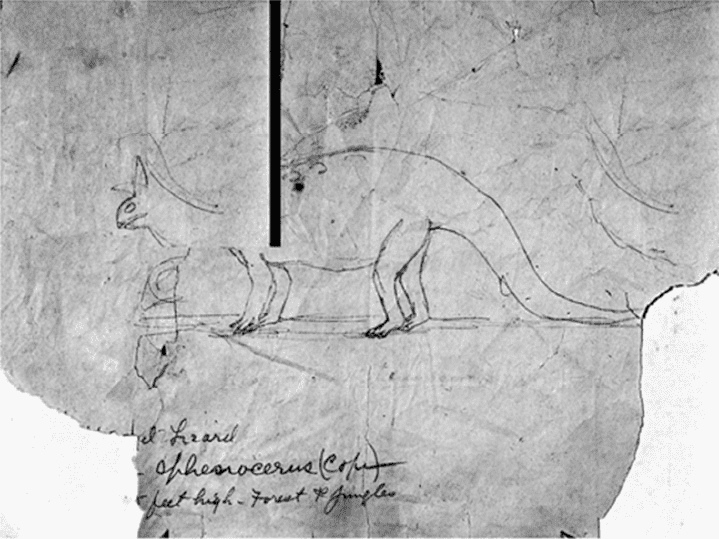 Lizard
Sphenocerus (Cope)
feet high - Forest & Jungles